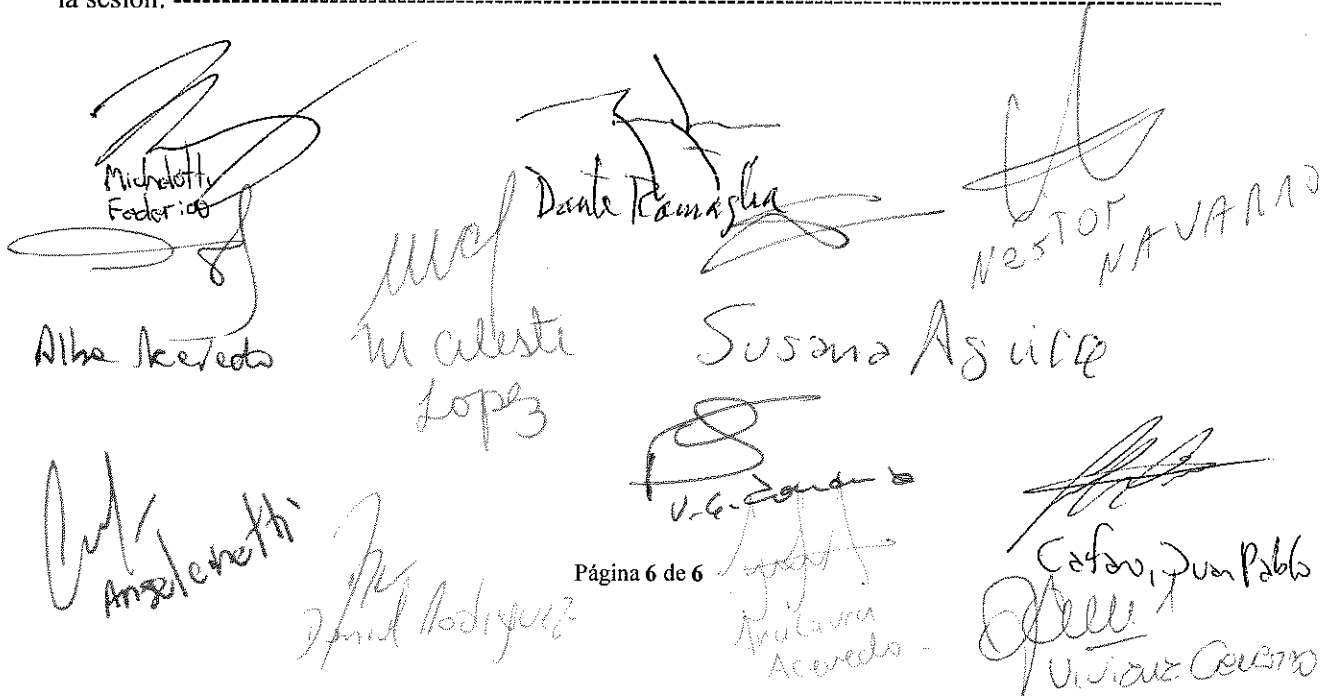 la sesión. ----------------------------------------------------------------
Michelotti
Federico
Dante Ramaglia
Nestor
NAVARRO
Alba Acevedo
M Celeste
Lopez
Susana Aguirre
V. G.
Angelenetti
Página 6 de 6
Cafaro, Juan Pablo
Daniel Rodriguez
Analaura
Acevedo
Viviana